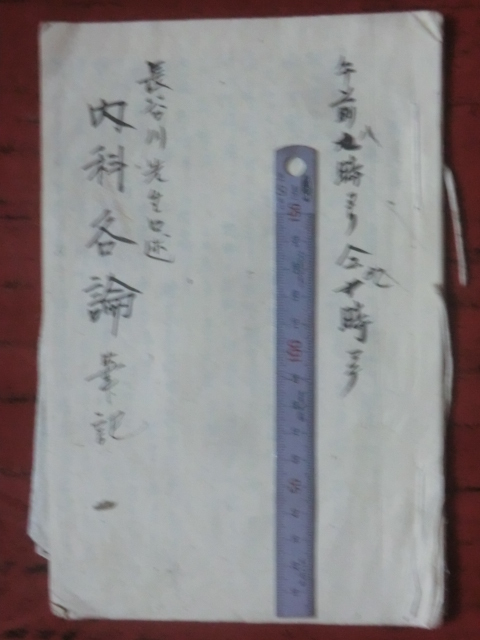 午前七八時ヨリ仝十九時マデ
長谷川先生口述
内科各論筆記 一